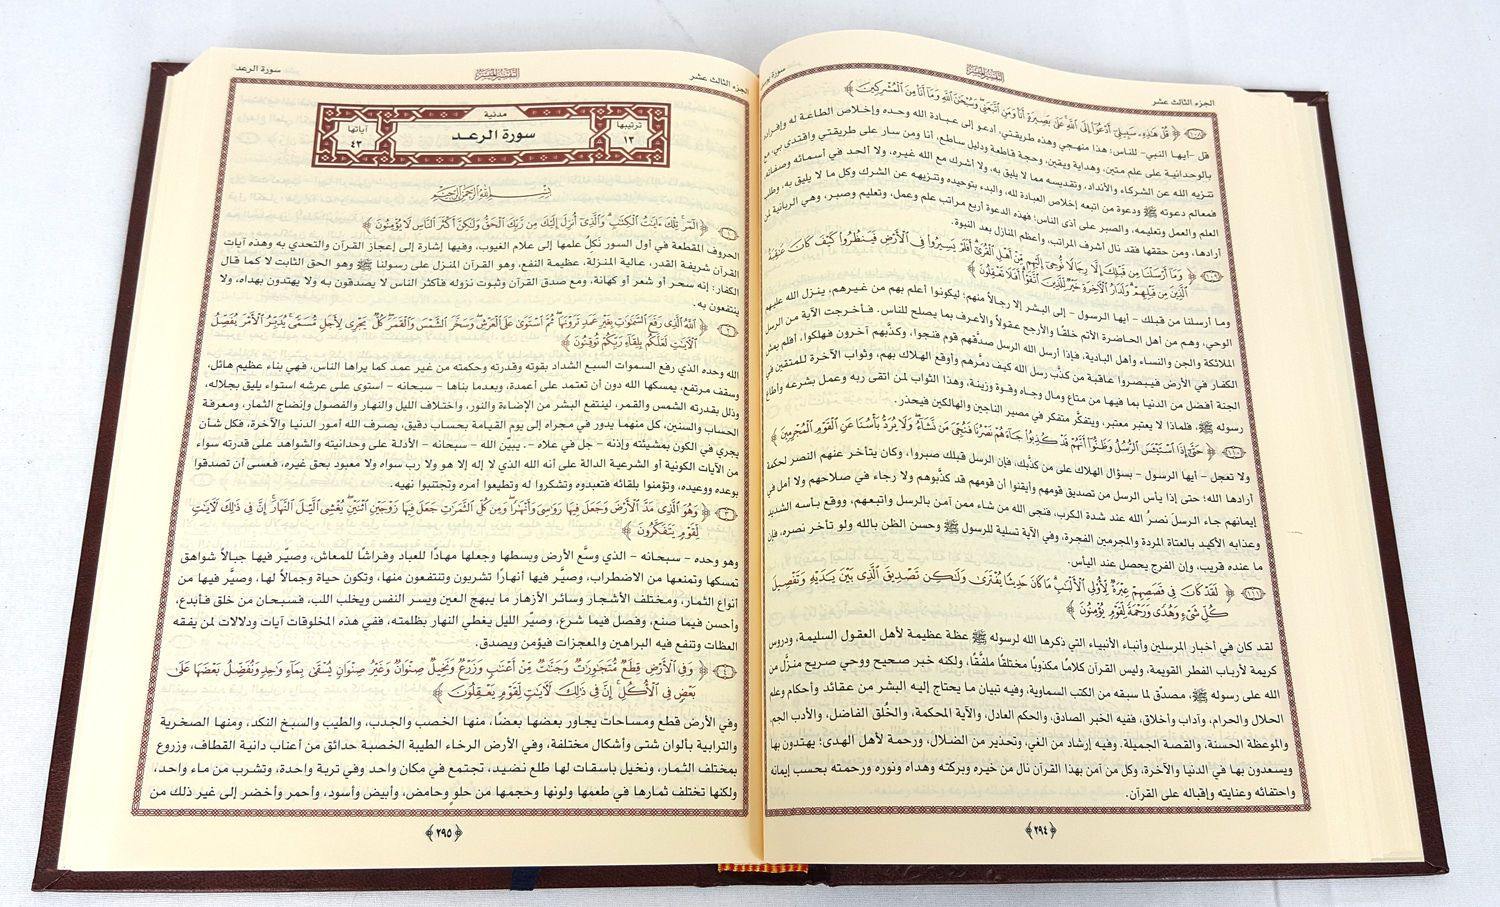 الجزء الثالث عشر
التفسير الميسر
سورة
﴿ قُلْ هَٰذِهِۦ سَبِيلِىٓ أَدْعُوٓا۟ إِلَى ٱللَّهِ ۚ عَلَىٰ بَصِيرَةٍ أَنَا۠ وَمَنِ ٱتَّبَعَنِى ۖ وَسُبْحَٰنَ ٱللَّهِ وَمَآ أَنَا۠ مِنَ ٱلْمُشْرِكِينَ ﴾ ١٠٨
قل -أيها النبي- للناس: هذا منهجي وهذه طريقتي، أدعو إلى عبادة الله وحده وإخلاص الطاعة له وإفراده
بالوحدانية على علم متين، وهداية ويقين، وحجة قاطعة ودليل ساطع، أنا ومن سار على طريقتي واقتدى بي، مع
تنزيه الله عن الشركاء والأنداد، وتقديسه مما لا يليق به، ولا أشرك مع الله غيره، ولا ألحد في أسمائه وصفاته
فمعالم دعوته ﷺ ودعوة من اتبعه إخلاص العبادة لله، والبدء بتوحيده وتنزيهه عن الشرك وكل ما لا يليق به، وطلب
العلم والعمل وتعليمه، والصبر على أذى الناس؛ فهذه الدعوة أربع مراتب علم وعمل، وتعليم وصبر، وهي الربانية لمن
أرادها، ومن حققها فقد نال أشرف المراتب، وأعظم المنازل بعد النبوة.
﴿ وَمَآ أَرْسَلْنَا مِن قَبْلِكَ إِلَّا رِجَالًا نُّوحِىٓ إِلَيْهِم مِّنْ أَهْلِ ٱلْقُرَىٰٓ ۗ أَفَلَمْ يَسِيرُوا۟ فِى ٱلْأَرْضِ فَيَنظُرُوا۟ كَيْفَ كَانَ عَٰقِبَةُ
ٱلَّذِينَ مِن قَبْلِهِمْ ۗ وَلَدَارُ ٱلْءَاخِرَةِ خَيْرٌ لِّلَّذِينَ ٱتَّقَوْا۟ ۗ أَفَلَا تَعْقِلُونَ ﴾ ١٠٩
وما أرسلنا من قبلك - أيها الرسول - إلى البشر إلا رجالاً منهم؛ ليكونوا أعلم بهم من غيرهم، ينزل الله عليهم
الوحي، وهم من أهل الحاضرة الأتم خلقًا والأرجح عقولاً والأعرف بما يصلح للناس. فأخرجت الآية من الرسل
الملائكة والجن والنساء وأهل البادية، فإذا أرسل الله الرسل صدقهم قوم فنجوا، وكذّبهم آخرون فهلكوا، أفلم يمش
الكفار في الأرض فيبصروا عاقبة من كذّب رسل الله كيف دمّرهم وأوقع الهلاك بهم، وثواب الآخرة للمتقين في
الجنة أفضل من الدنيا بما فيها من متاع ومال وجاه وقوة وزينة، وهذا الثواب لمن اتقى ربه وعمل بشرعه وأطاع
رسوله ﷺ، فلماذا لا يعتبر معتبر، ويتفكّر متفكر في مصير الناجين والهالكين فيحذر.
﴿ حَتَّىٰٓ إِذَا ٱسْتَيْـَٔسَ ٱلرُّسُلُ وَظَنُّوٓا۟ أَنَّهُمْ قَدْ كُذِبُوا۟ جَآءَهُمْ نَصْرُنَا فَنُجِّىَ مَن نَّشَآءُ ۖ وَلَا يُرَدُّ بَأْسُنَا عَنِ ٱلْقَوْمِ ٱلْمُجْرِمِينَ ﴾ ١١٠
ولا تعجل - أيها الرسول - بسؤال الهلاك على من كذّبك، فإن الرسل قبلك صبروا، وكان يتأخر عنهم النصر لحكمة
أرادها الله؛ حتى إذا يأس الرسل من تصديق قومهم وأيقنوا أن قومهم قد كذّبوهم ولا رجاء في صلاحهم ولا أمل في
إيمانهم جاء الرسلَ نصرُ الله عند شدة الكرب، فنجى الله من شاء ممن آمن بالرسل واتبعهم، ووقع بأسه الشديد
وعذابه الأكيد بالعتاة المردة والمجرمين الفجرة، وفي الآية تسلية للرسول ﷺ وحسن الظن بالله ولو تأخر نصره، فإن
ما عنده قريب، وإن الفرج يحصل عند اليأس.
﴿ لَقَدْ كَانَ فِى قَصَصِهِمْ عِبْرَةٌ لِّأُو۟لِى ٱلْأَلْبَٰبِ ۗ مَا كَانَ حَدِيثًا يُفْتَرَىٰ وَلَٰكِن تَصْدِيقَ ٱلَّذِى بَيْنَ يَدَيْهِ وَتَفْصِيلَ
كُلِّ شَىْءٍ وَهُدًى وَرَحْمَةً لِّقَوْمٍ يُؤْمِنُونَ ﴾ ١١١
لقد كان في أخبار المرسلين وأنباء الأنبياء التي ذكرها الله لرسوله ﷺ عظة عظيمة لأهل العقول السليمة، ودروس
كريمة لأرباب الفطر القويمة، وليس القرآن كلامًا مكذوبًا مختلقًا ملفَّقًا، ولكنه خبر صحيح ووحي صريح منزَّل من
الله على رسوله ﷺ، مصدّق لما سبقه من الكتب السماوية، وفيه تبيان ما يحتاج إليه البشر من عقائد وأحكام وعلم
الحلال والحرام، وآداب وأخلاق، ففيه الخبر الصادق، والحكم العادل، والآية المحكمة، والخُلق الفاضل، والأدب الجم،
والموعظة الحسنة، والقصة الجميلة. وفيه إرشاد من الغي، وتحذير من الضلال، ورحمة لأهل الهدى؛ يهتدون بها
ويسعدون بها في الدنيا والآخرة، وكل من آمن بهذا القرآن نال من خيره وبركته وهداه ونوره ورحمته بحسب إيمانه
واحتفائه وعنايته وإقباله على القرآن.
﴿٢٩٤﴾
الجزء الثالث عشر
التفسير الميسر
سورة الرعد
ترتيبها
١٣
مدنية
سورة الرعد
آياتها
٤٣
بِسْمِ ٱللَّهِ ٱلرَّحْمَٰنِ ٱلرَّحِيمِ
﴿ الٓمٓر ۚ تِلْكَ ءَايَٰتُ ٱلْكِتَٰبِ ۗ وَٱلَّذِىٓ أُنزِلَ إِلَيْكَ مِن رَّبِّكَ ٱلْحَقُّ وَلَٰكِنَّ أَكْثَرَ ٱلنَّاسِ لَا يُؤْمِنُونَ ﴾ ١
الحروف المقطعة في أول السور نَكلُ علمها إلى علام الغيوب، وفيها إشارة إلى إعجاز القرآن والتحدي به وهذه آيات
القرآن شريفة القدر، عالية المنزلة، عظيمة النفع، وهو القرآن المنزل على رسولنا ﷺ وهو الحق الثابت لا كما قال
الكفار: إنه سحر أو شعر أو كهانة، ومع صدق القرآن وثبوت نزوله فأكثر الناس لا يصدقون به ولا يهتدون بهداه، ولا
ينتفعون به.
﴿ ٱللَّهُ ٱلَّذِى رَفَعَ ٱلسَّمَٰوَٰتِ بِغَيْرِ عَمَدٍ تَرَوْنَهَا ۖ ثُمَّ ٱسْتَوَىٰ عَلَى ٱلْعَرْشِ ۖ وَسَخَّرَ ٱلشَّمْسَ وَٱلْقَمَرَ ۖ كُلٌّ يَجْرِى لِأَجَلٍ مُّسَمًّى ۚ يُدَبِّرُ ٱلْأَمْرَ يُفَصِّلُ
ٱلْءَايَٰتِ لَعَلَّكُم بِلِقَآءِ رَبِّكُمْ تُوقِنُونَ ﴾ ٢
الله وحده الذي رفع السموات السبع الشداد بقوته وقدرته وحكمته من غير عمد كما يراها الناس، فهي بناء عظيم هائل،
وسقف مرتفع، يمسكها الله دون أن تعتمد على أعمدة، وبعدما بناها - سبحانه - استوى على عرشه استواء يليق بجلاله،
وذلل بقدرته الشمس والقمر، لينتفع البشر من الإضاءة والنور، واختلاف الليل والنهار والفصول وإنضاج الثمار، ومعرفة
الحساب والسنين، كل منهما يدور في مجراه إلى يوم القيامة بحساب دقيق، يصرف الله أمور الدنيا والآخرة، فكل شأن
يجري في الكون بمشيئته وإذنه - جل في علاه -. يبيّن الله - سبحانه - الأدلة على وحدانيته والشواهد على قدرته سواء
من الآيات الكونية أو الشرعية الدالة على أنه الله الذي لا إله إلا هو ولا رب سواه ولا معبود بحق غيره، فعسى أن تصدقوا
بوعده ووعيده، وتؤمنوا بلقائه فتعبدوه وتشكروا له وتطيعوا أمره وتجتنبوا نهيه.
﴿ وَهُوَ ٱلَّذِى مَدَّ ٱلْأَرْضَ وَجَعَلَ فِيهَا رَوَٰسِىَ وَأَنْهَٰرًا ۖ وَمِن كُلِّ ٱلثَّمَرَٰتِ جَعَلَ فِيهَا زَوْجَيْنِ ٱثْنَيْنِ ۖ يُغْشِى ٱلَّيْلَ ٱلنَّهَارَ ۚ إِنَّ فِى ذَٰلِكَ لَءَايَٰتٍ
لِّقَوْمٍ يَتَفَكَّرُونَ ﴾ ٣
وهو وحده - سبحانه - الذي وسَّع الأرض وبسطها وجعلها مهادًا للعباد وفراشًا للمعاش، وصيّر فيها جبالاً شواهق
تمسكها وتمنعها من الاضطراب، وصيّر فيها أنهارًا تشربون وتنتفعون منها، وتكون حياة وجمالاً لها، وصيَّر فيها من
أنواع الثمار، ومختلف الأشجار وسائر الأزهار ما يبهج العين ويسر النفس ويخلب اللب، فسبحان من خلق فأبدع،
وأحسن فيما صنع، وفصل فيما شرع، وصيّر الليل يغطي النهار بظلمته، ففي هذه المخلوقات آيات ودلالات لمن يفقه
العظات وتنفع فيه البراهين والمعجزات فيؤمن ويصدق.
﴿ وَفِى ٱلْأَرْضِ قِطَعٌ مُّتَجَٰوِرَٰتٌ وَجَنَّٰتٌ مِّنْ أَعْنَٰبٍ وَزَرْعٌ وَنَخِيلٌ صِنْوَانٌ وَغَيْرُ صِنْوَانٍ يُسْقَىٰ بِمَآءٍ وَٰحِدٍ وَنُفَضِّلُ بَعْضَهَا عَلَىٰ
بَعْضٍ فِى ٱلْأُكُلِ ۚ إِنَّ فِى ذَٰلِكَ لَءَايَٰتٍ لِّقَوْمٍ يَعْقِلُونَ ﴾ ٤
وفي الأرض قطع ومساحات يجاور بعضها بعضًا، منها الخصب والجدب، والطيب والسبخ النكد، ومنها الصخرية
والترابية بألوان شتى وأشكال مختلفة، وفي الأرض الرخاء الطيبة الخصبة حدائق من أعناب دانية القطاف، وزروع
بمختلف الثمار، ونخيل باسقات لها طلع نضيد، تجتمع في مكان واحد وفي تربة واحدة، وتشرب من ماء واحد،
ولكنها تختلف ثمارها في طعمها ولونها وحجمها من حلوٍ وحامض، وأبيض وأسود، وأحمر وأخضر إلى غير ذلك من
﴿٢٩٥﴾